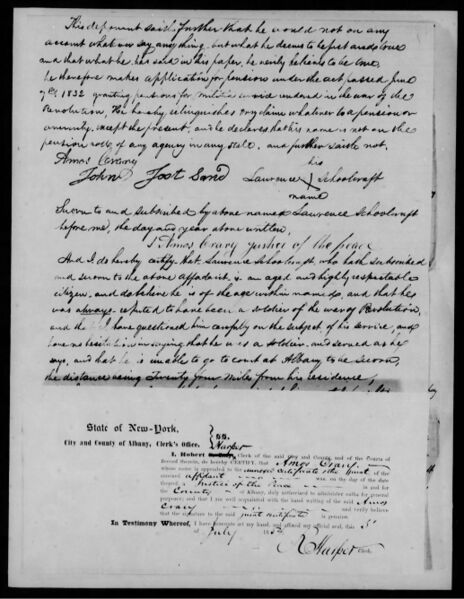 This deponent saith further that he would not on any
account whatever say anything but what he deems to be just and true
and that what he has said in this paper, he verily believes to be true,
he therefore makes application for pension under the act passed June
7th 1832 granting pensions for militia service rendered in the war of the
Revolution, He hereby relinquishes every claim whatever to a pension or
annuity, except the present, and he declares that his name is not on the
pension roll of any agency in any state. and further saith not.
Amos Crary his
John Jost Sand Lawrence X Schoolcraft
name
Sworn to and subscribed by above named Lawrence Schoolcraft
before me, the day and year above written,
Amos Crary justice of the peace
And I do hereby certify that Lawrence Schoolcraft, who hath subscribed
and sworn to the above affidavit is an aged and highly respectable
citizen, and do believe he is of the age within named, and that he
was always reputed to have been a soldier of the war of Revolution,
and that I have questioned him carefully on the subject of his service, and
have no hesitation in saying that he was a soldier, and served as he
says, and that he is unable to go to court at Albany to be sworn,
the distance being Twenty four Miles from his residence,
State of New-York,
City and County of Albany, Clerk's Office, } ss.
Harper
I, Robert Clerk of the said City and County, and of the Courts of
Record therein, do hereby CERTIFY, that Amos Crary
whose name is appended to the annexed certificate of the
annexed affidavit was on the day of the date
thereof a Justice of the Peace in and for
the County of Albany, duly authorized to administer oaths for general
purposes; and that I am well acquainted with the hand writing of the said Amos
Crary and verily believe
that the signature to the said certificate is genuine.
In Testimony Whereof, I have hereunto set my hand, and affixed my official seal, this 5
of July 183
R Harper Clerk.